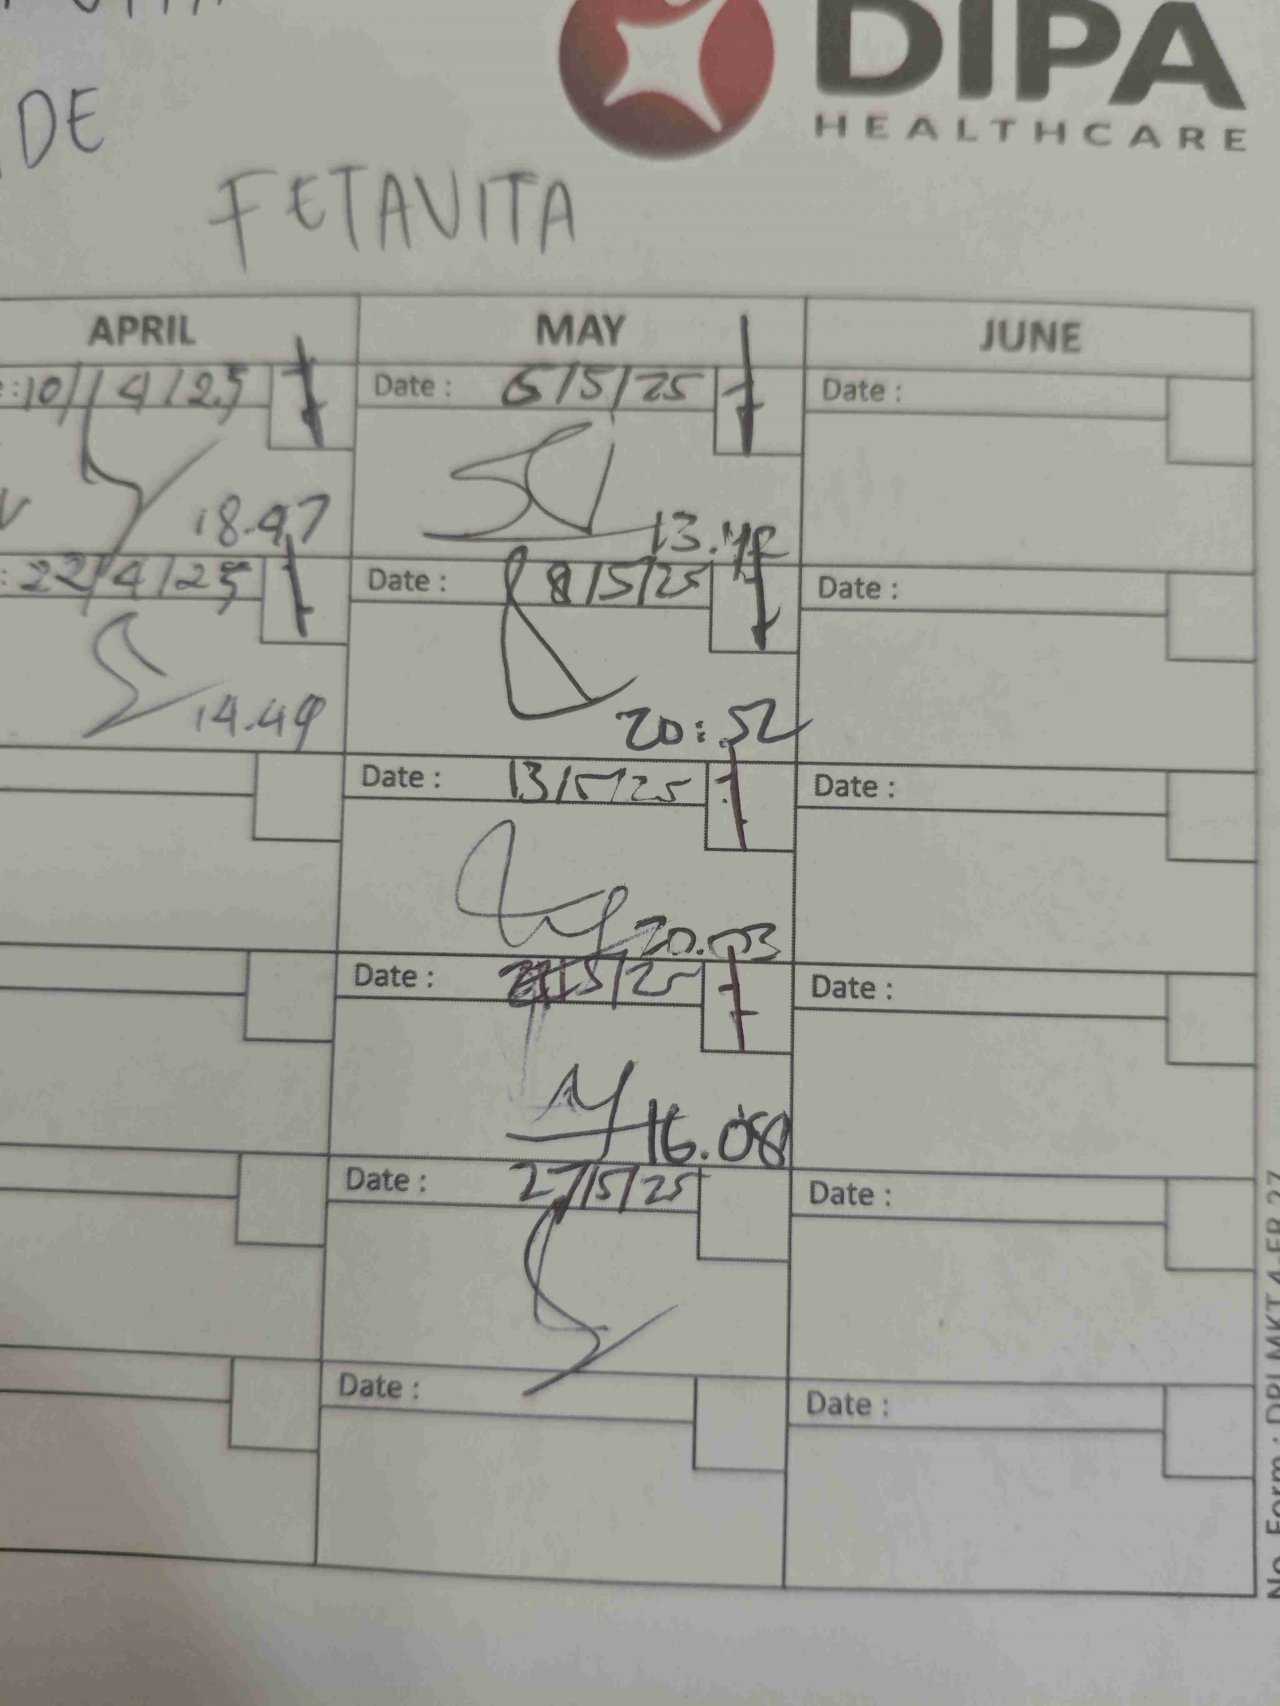 DIPA
HEALTHCARE
DE
FETAVITA
APRIL MAY JUNE
:10/4/25 Date : 6/5/25 Date :
18.47 13.42
: 22/4/25 Date : 8/5/25 Date :
14.49 20:52
Date : 13/5/25 Date :
20.03
Date : /5/25 Date :
16.08
Date : 27/5/25 Date :
Date : Date :
No. Form : DPI.MKT.4-FR.27